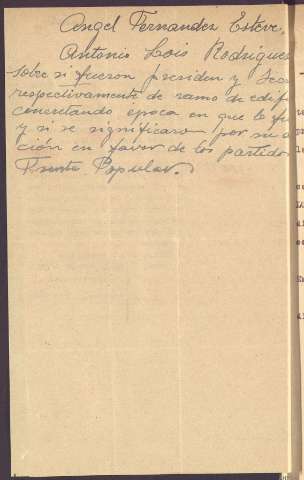 Angel Fernandez Esteve,
Antonio Lois Rodriguez
sobre si fueron presiden y Secr
respectivamente de ramo de edifi
concretando época en que lo fu
y si se significaron por su a
ción en favor de los partido
Frente Popular.